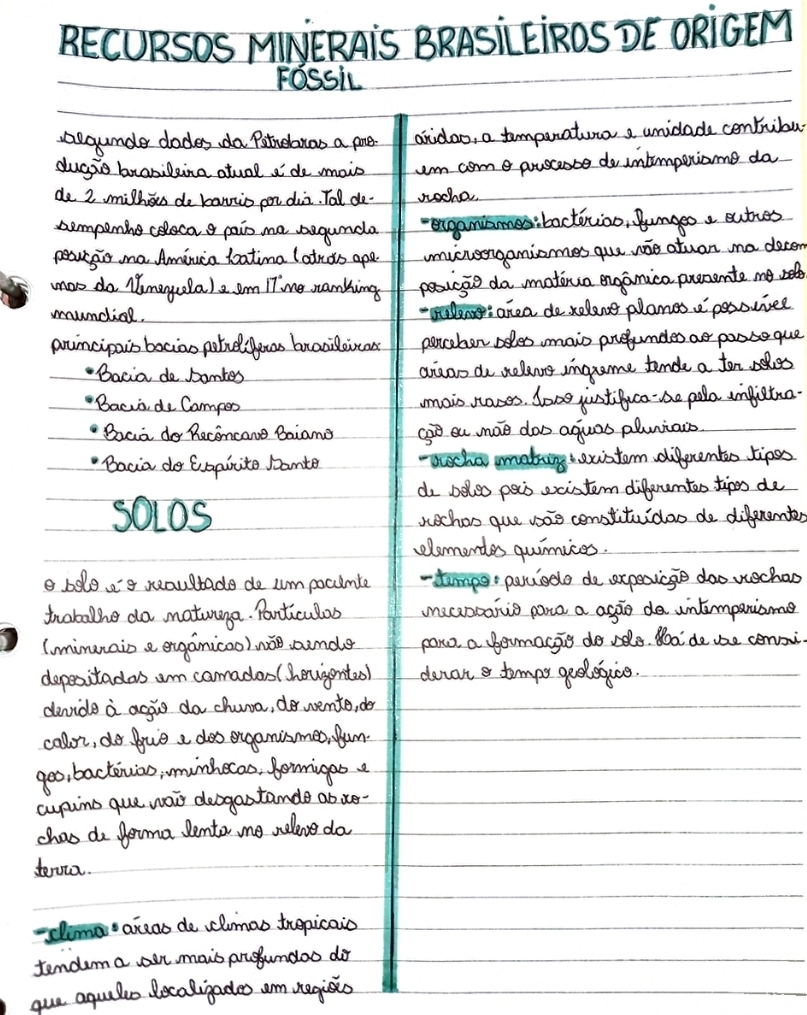 RECURSOS MINERAIS BRASILEIROS DE ORIGEM
FÓSSIL
segundo dados da Petrobras a pro-
dução brasileira atual é de mais
de 2 milhões de barris por dia. Tal de-
sempenho coloca o país na segunda
posição na América Latina (atrás ape-
nas da Venezuela) e em 17° no ranking
mundial.
principais bacias petrolíferas brasileiras:
• Bacia de Santos
• Bacia de Campos
• Bacia do Recôncavo Baiano
• Bacia do Espírito Santo
SOLOS
o solo é o resultado de um paciente
trabalho da natureza. Partículas
(minerais e orgânicas) vão sendo
depositadas em camadas (horizontes)
devido à ação da chuva, do vento, do
calor, do frio e dos organismos, fun-
gos, bactérias, minhocas, formigas e
cupins que vão desgastando as ro-
chas de forma lenta no relevo da
terra.
-clima: áreas de climas tropicais
tendem a ser mais profundas do
que aqueles localizados em regiões
áridas, a temperatura e unidade contribu-
em com o processo de intemperismo da
rocha.
-organismos: bactérias, fungos e outros
microorganismos que vão atuar na decom
posição da matéria orgânica presente no solo.
-relevo: área de relevo planos é possível
perceber solos mais profundos ao passo que
áreas de relevo íngreme tende a ter solos
mais rasos. Isso justifica-se pela infiltra-
ção ou não das águas pluviais.
-rocha matriz: existem diferentes tipos
de solos pois existem diferentes tipos de
rochas que são constituídas de diferentes
elementos químicos.
-tempo: período de exposição das rochas
necessário para a ação do intemperismo
para a formação do solo. Há de se consi-
derar o tempo geológico.